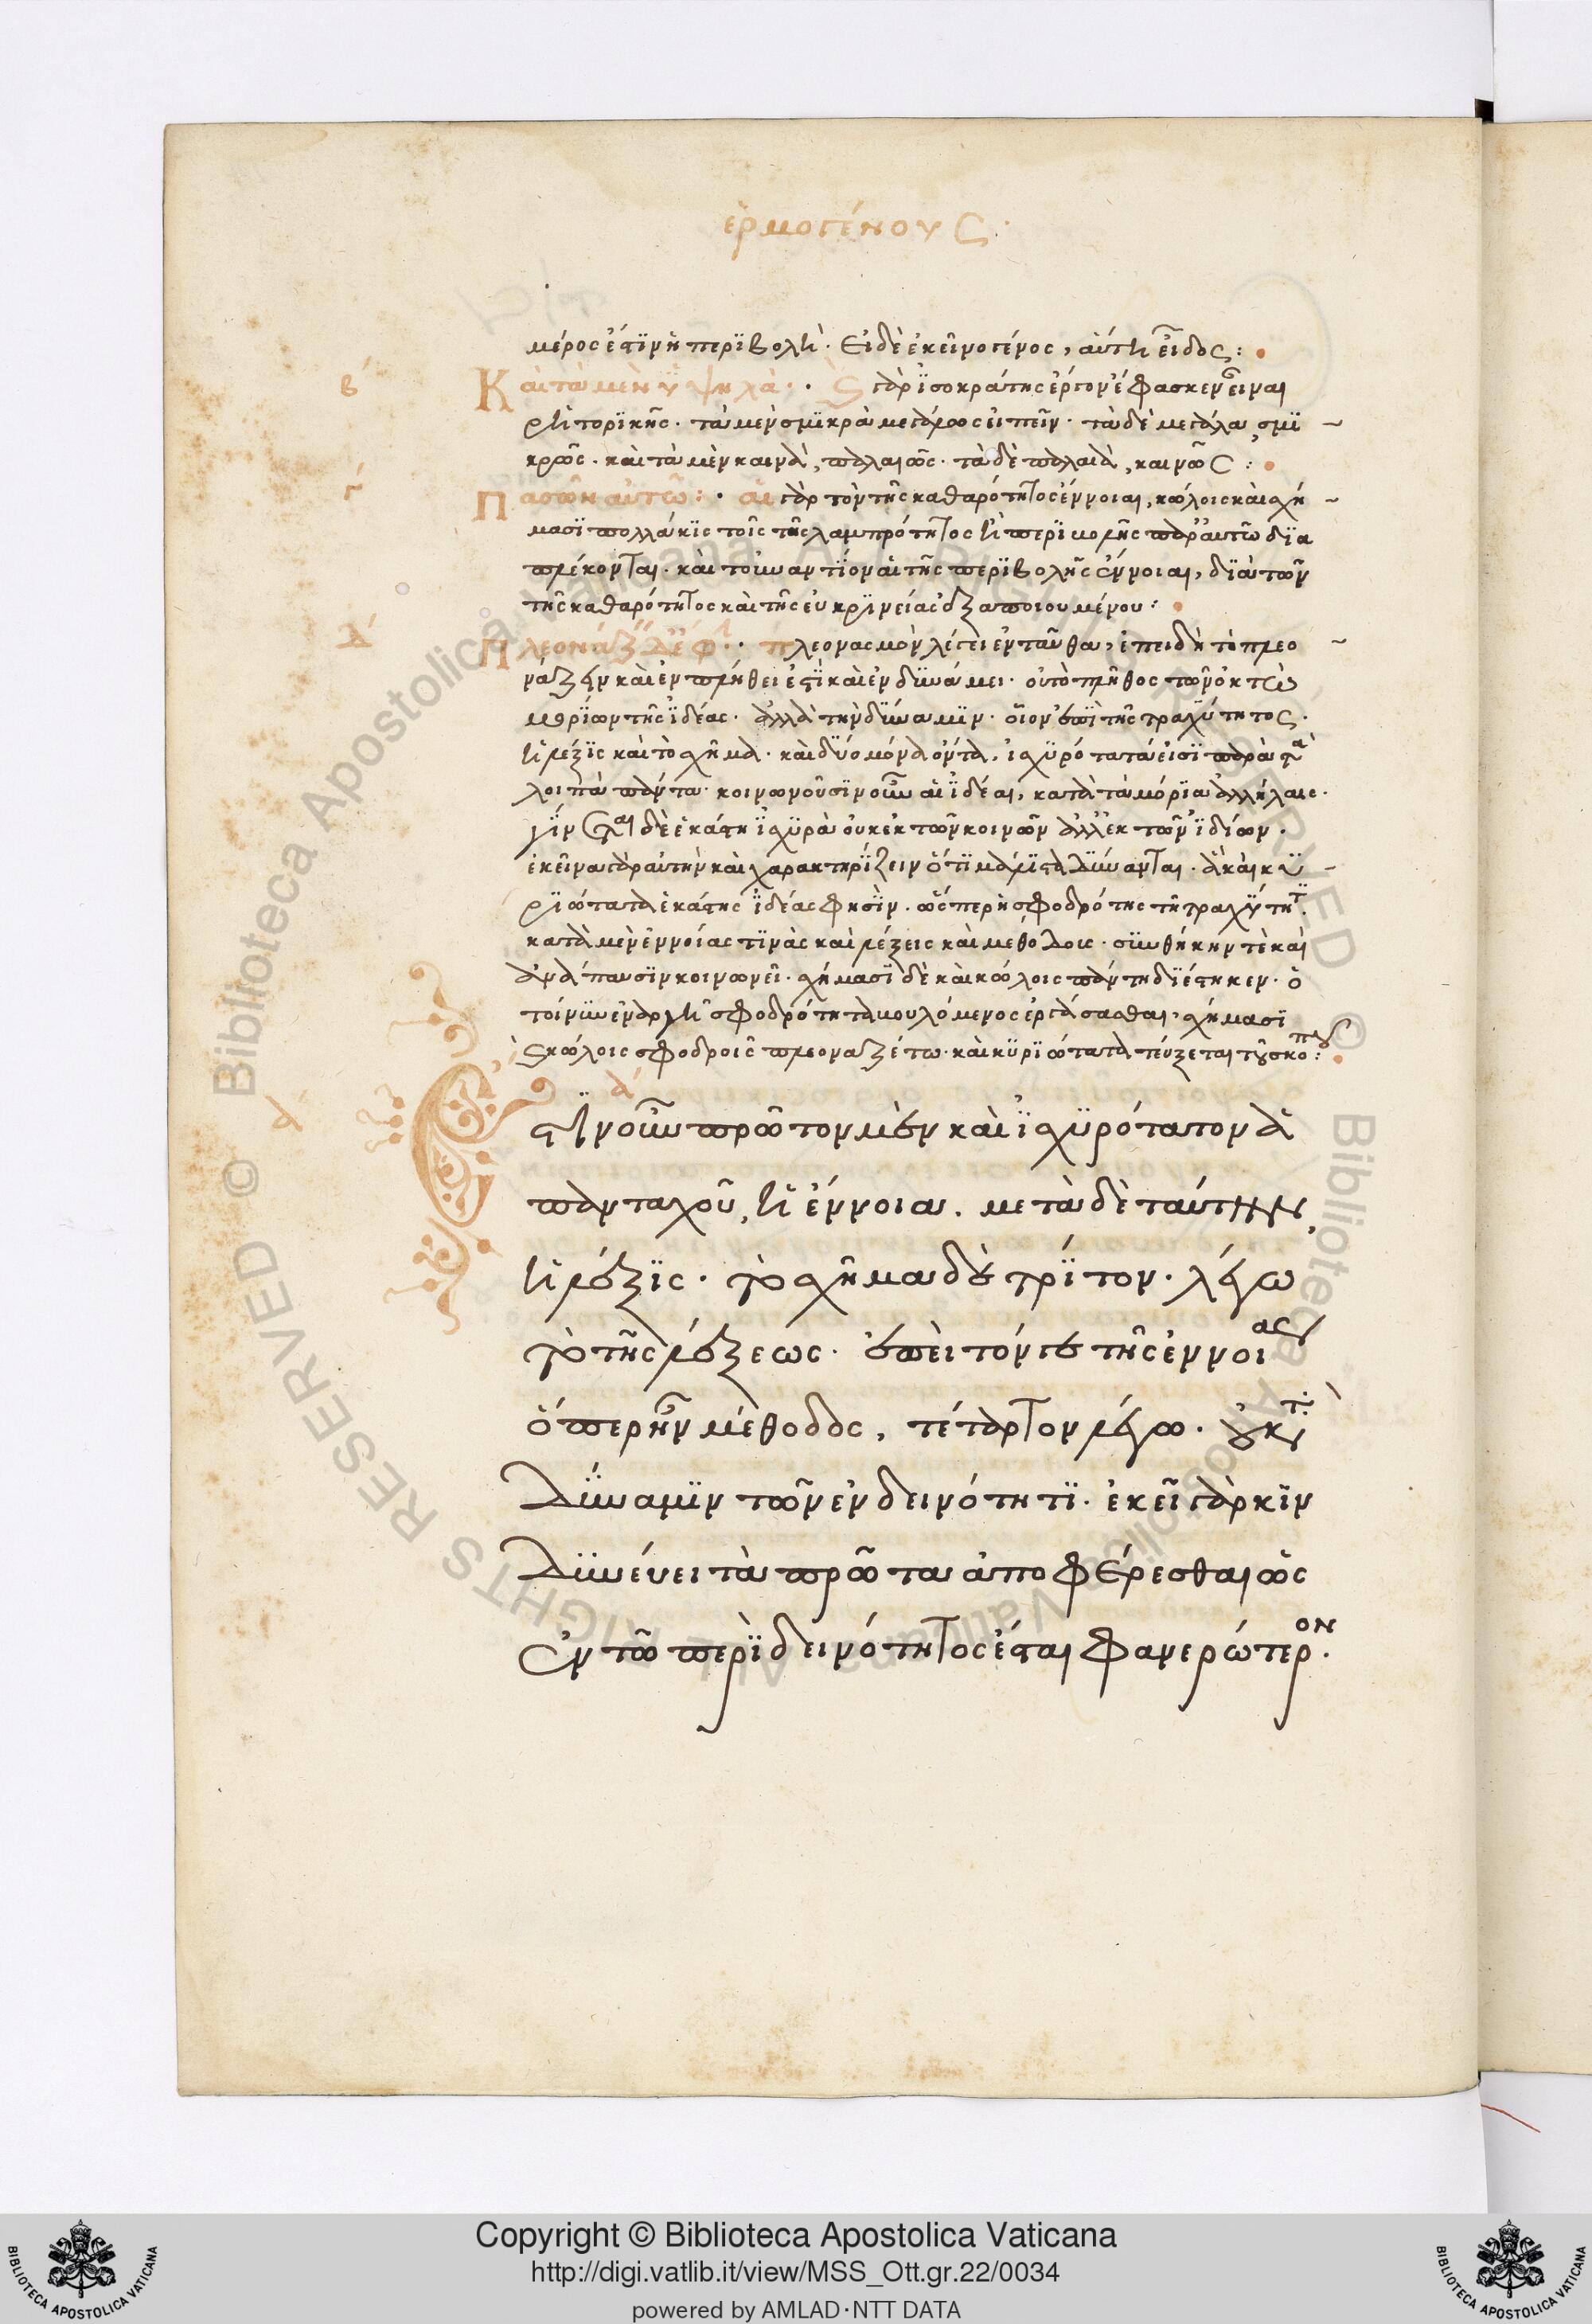 ἑρμογένους
μέρος ἐστὶν ἡ περιβολή. εἰ δὲ ἐκεῖνο γένος, αὕτη εἶδος:
β Καὶ τὰ μὲν ὑψηλά. καὶ γὰρ ἰσοκράτης ἔργον ἔφασκεν εἶναι
ῥητορικῆς. τὰ μὲν σμικρὰ μεγάλως εἰπεῖν. τὰ δὲ μεγάλα σμι
κρῶς. καὶ τὰ μὲν καινὰ, παλαιῶς. τὰ δὲ παλαιὰ, καινῶς:
γ Πασῶν αὐτῶ: αἱ γὰρ τὸν τῆς καθαρότητος ἔννοιαι, κώλοις καὶ σχή
μασι πολλάκις τοῖς τῆς λαμπρότητος ἢ περιβολῆς παρ' αὐτῶ δια
πλέκονται. καὶ τοὐναντίον αἱ τῆς περιβολῆς ἔννοιαι, διὰ τῶν
τῆς καθαρότητος καὶ τῆς εὐκρινείας ἐξαποιουμένου:
δ Πλεονάζ δέ φ. πλεονασμὸν λέγει ἐνταῦθα, ἐπειδὴ τὸ πλεο
νάζειν καὶ ἐν πλήθει ἐστὶ καὶ ἐν δυνάμει. οὐ τὸ πλῆθος τῶν ὀκτὼ
μορίων τῆς ἰδέας. ἀλλὰ τὴν δύναμιν. οἷον ἐπὶ τῆς τραχύτητος.
ἡ λέξις καὶ τὸ σχῆμα. καὶ δύο μόνα ὄντα, ἰσχυρότατά εἰσι παρὰ τὰ
λοιπὰ πάντα. κοινωνοῦσιν οὖν αἱ ἰδέαι, κατὰ τὰ μόρια ἀλλήλαις.
γίνεται δὲ ἑκάστη ἰσχυρὰ οὐκ ἐκ τῶν κοινῶν ἀλλ' ἐκ τῶν ἰδίων.
ἐκεῖνα γὰρ αὐτὴν καὶ χαρακτηρίζειν ὅτι μάλιστα δύνανται. ἃ καὶ κυ
ριώτατα ἑκάστης ἰδέας φησὶν. ὥσπερ ἡ σφοδρότης τῆ τραχύτητι
κατὰ μὲν ἐννοίας τινὰς καὶ λέξεις καὶ μεθόδοις. συνθήκην τὲ καὶ
ἀνάπαυσιν κοινωνεῖ. σχήμασι δὲ καὶ κώλοις πάντη διέστηκεν. ὁ
τοίνυν ἐναργῆ σφοδρότητα βουλόμενος ἐργάσασθαι, σχήμασι
καὶ κώλοις σφοδροῖς πλεοναζέτω. καὶ κυριώτατα τεύξεται τοῦ σκοποῦ:
α Ἔστιν οὖν πρῶτον μὲν καὶ ἰσχυρότατον ἀ
πανταχοῦ, ἡ ἔννοια. μετὰ δὲ ταύτην,
ἡ λέξις. τὸ σχῆμα δὲ τρίτον. λέγω
τὸ τῆς λέξεως. ἐπεὶ τό γε τῆς ἐννοίας
ὅπερ ἦν μέθοδος, τέταρτον λέγω. οὐκ τ:
δύναμιν τῶν ἐν δεινότητι. ἐκεῖ γὰρ κιν
δυνεύει τὰ πρῶτα ἀποφέρεσθαι ὡς
ἐν τῶ περὶ δεινότητος ἔσται φανερώτερον.
Copyright © Biblioteca Apostolica Vaticana
http://digi.vatlib.it/view/MSS_Ott.gr.22/0034
powered by AMLAD·NTT DATA